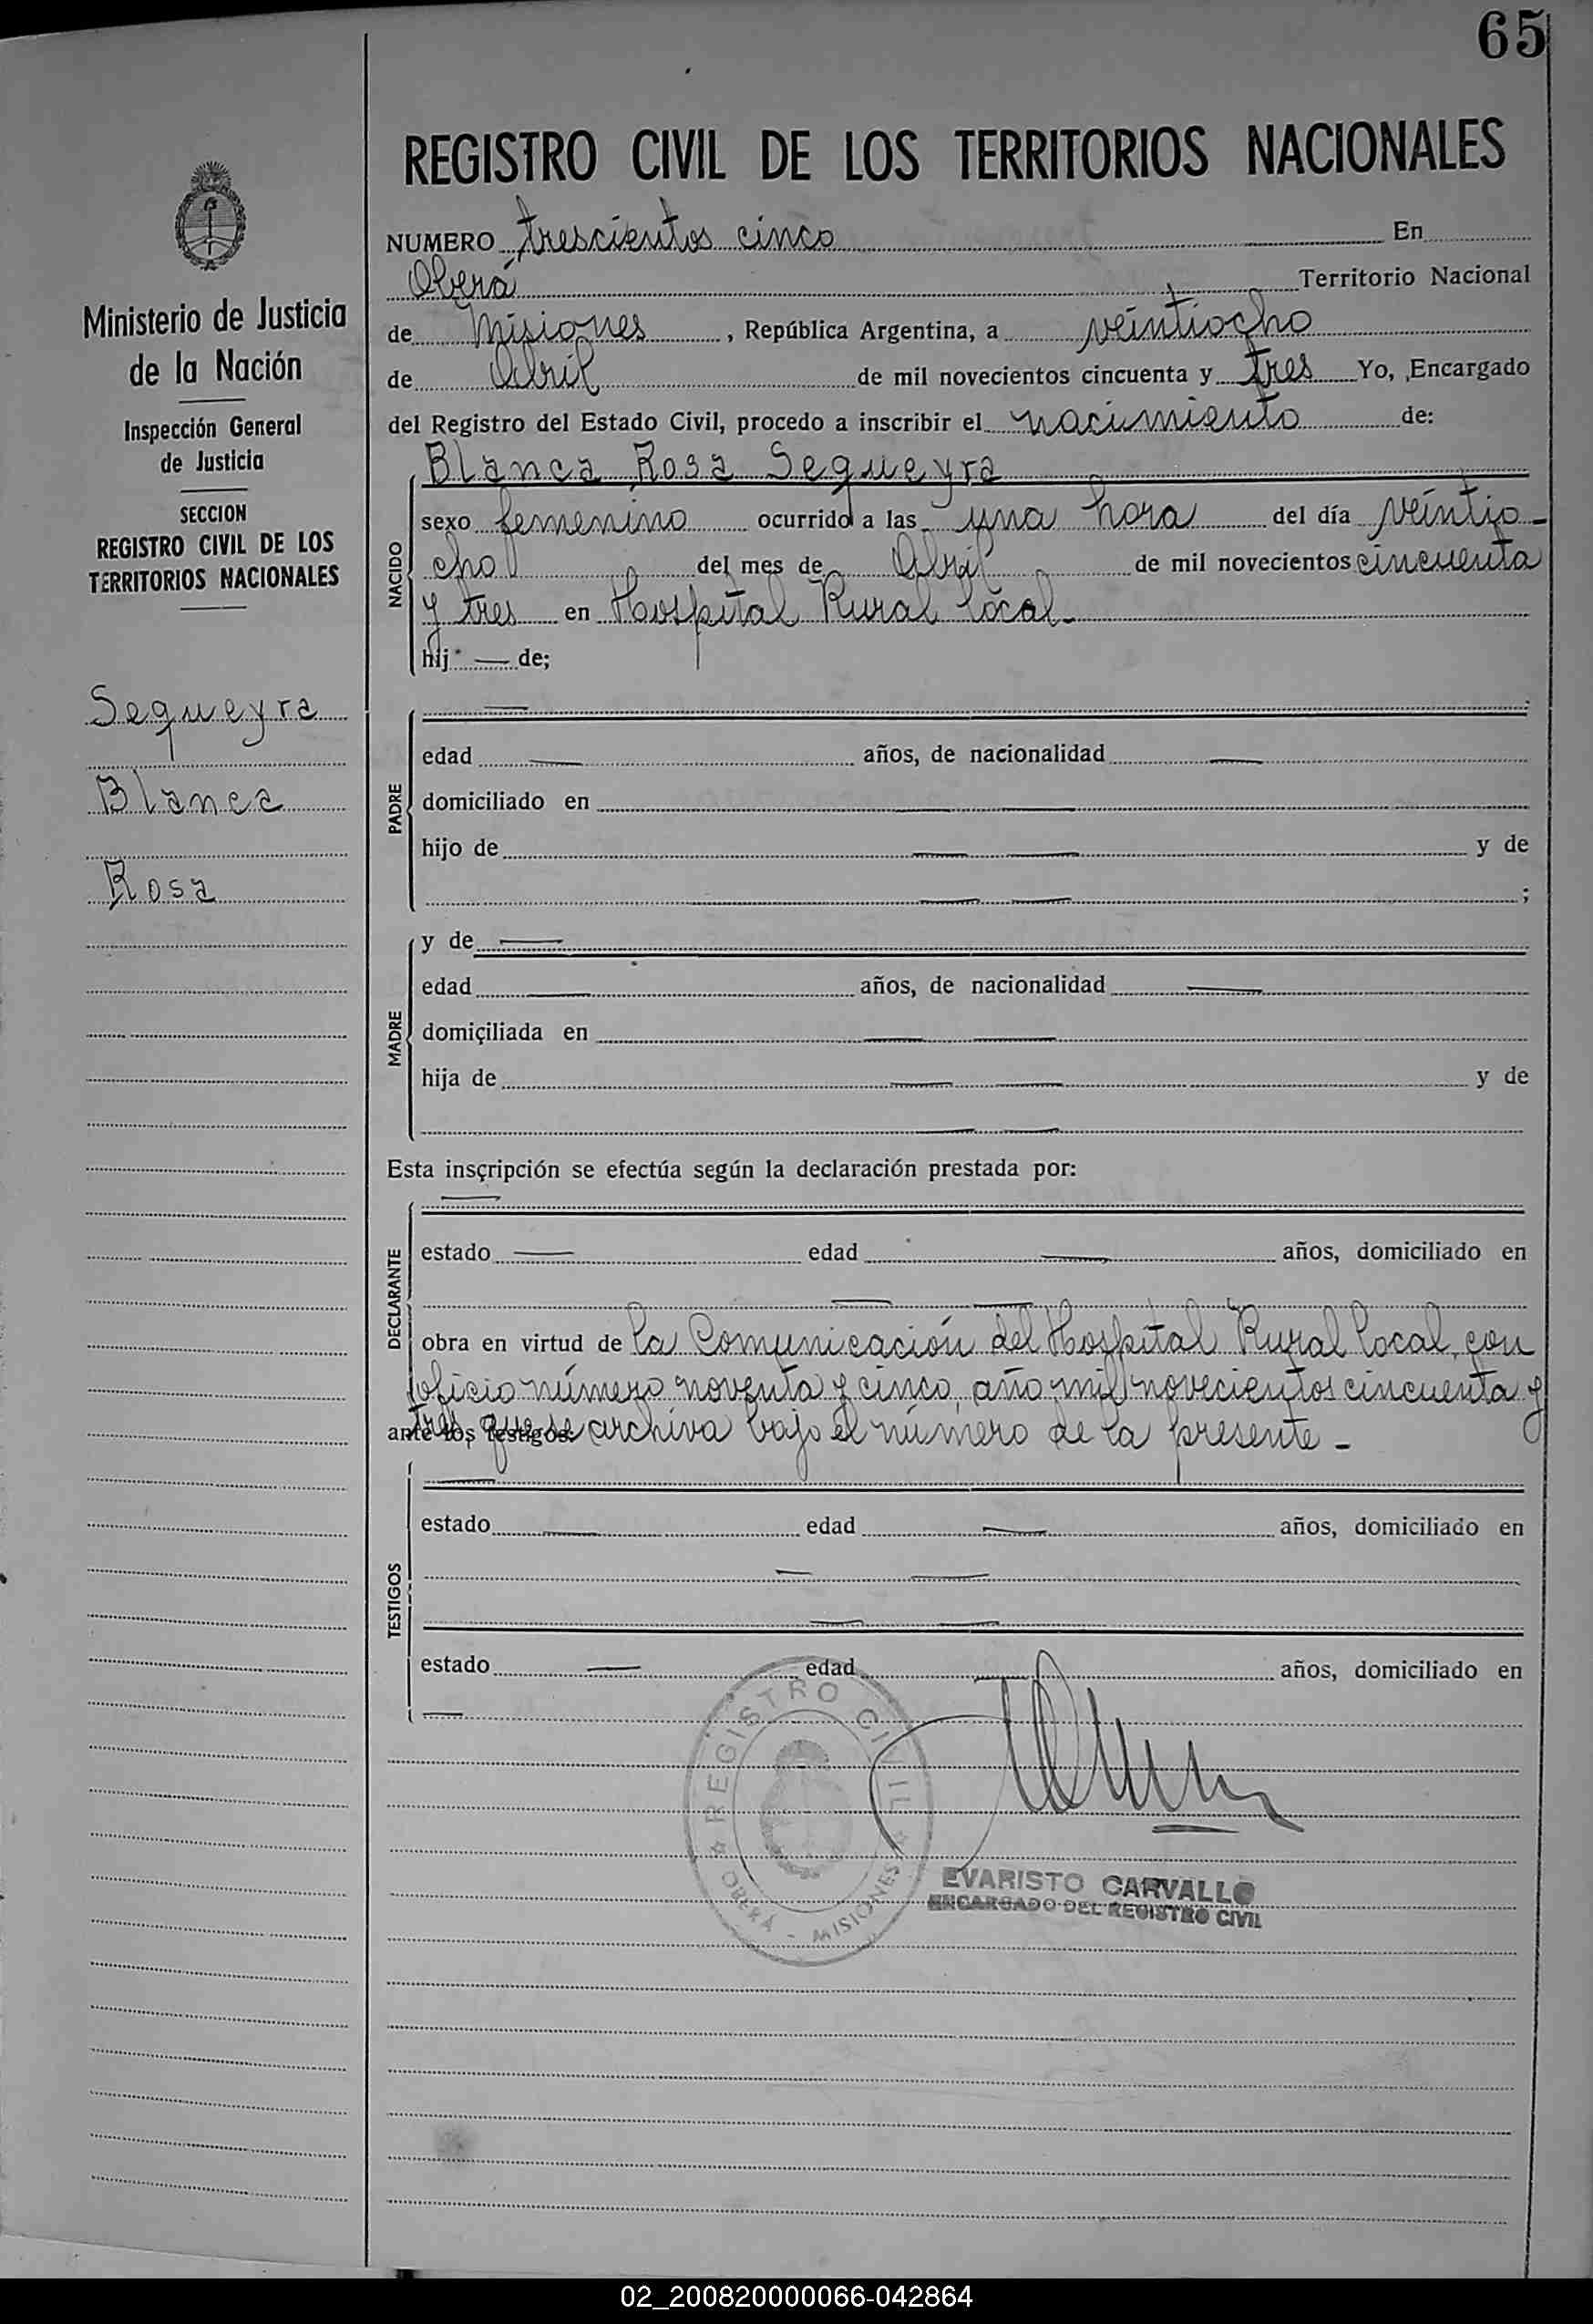 65
REGISTRO CIVIL DE LOS TERRITORIOS NACIONALES
Ministerio de Justicia
de la Nación
Inspección General
de Justicia
SECCION
REGISTRO CIVIL DE LOS
TERRITORIOS NACIONALES
Segueyra
Blanca
Rosa
NUMERO trescientos cinco En
Oberá Territorio Nacional
de Misiones, República Argentina, a veintiocho
de Abril de mil novecientos cincuenta y tres Yo, Encargado
del Registro del Estado Civil, procedo a inscribir el nacimiento de:
Blanca Rosa Segueyra
NACIDO
sexo femenino ocurrido a las una hora del día veintio-
cho del mes de Abril de mil novecientos cincuenta
y tres en Hospital Rural Local.-
hij — de;
PADRE
—
edad — años, de nacionalidad —
domiciliado en —
hijo de — — y de
— — ;
MADRE
y de —
edad — años, de nacionalidad —
domiciliada en — —
hija de — — y de
— —
Esta inscripción se efectúa según la declaración prestada por:
DECLARANTE
—
estado — edad — años, domiciliado en
— —
obra en virtud de la Comunicación del Hospital Rural Local, con
oficio número noventa y cinco, año mil novecientos cincuenta y
ante los testigos: tres, que se archiva bajo el número de la presente -
TESTIGOS
—
estado — edad — años, domiciliado en
— —
— —
estado — edad — años, domiciliado en
—
REGISTRO CIVIL
OBERÁ - MISIONES
EVARISTO CARVALLO
ENCARGADO DEL REGISTRO CIVIL
02_200820000066-042864